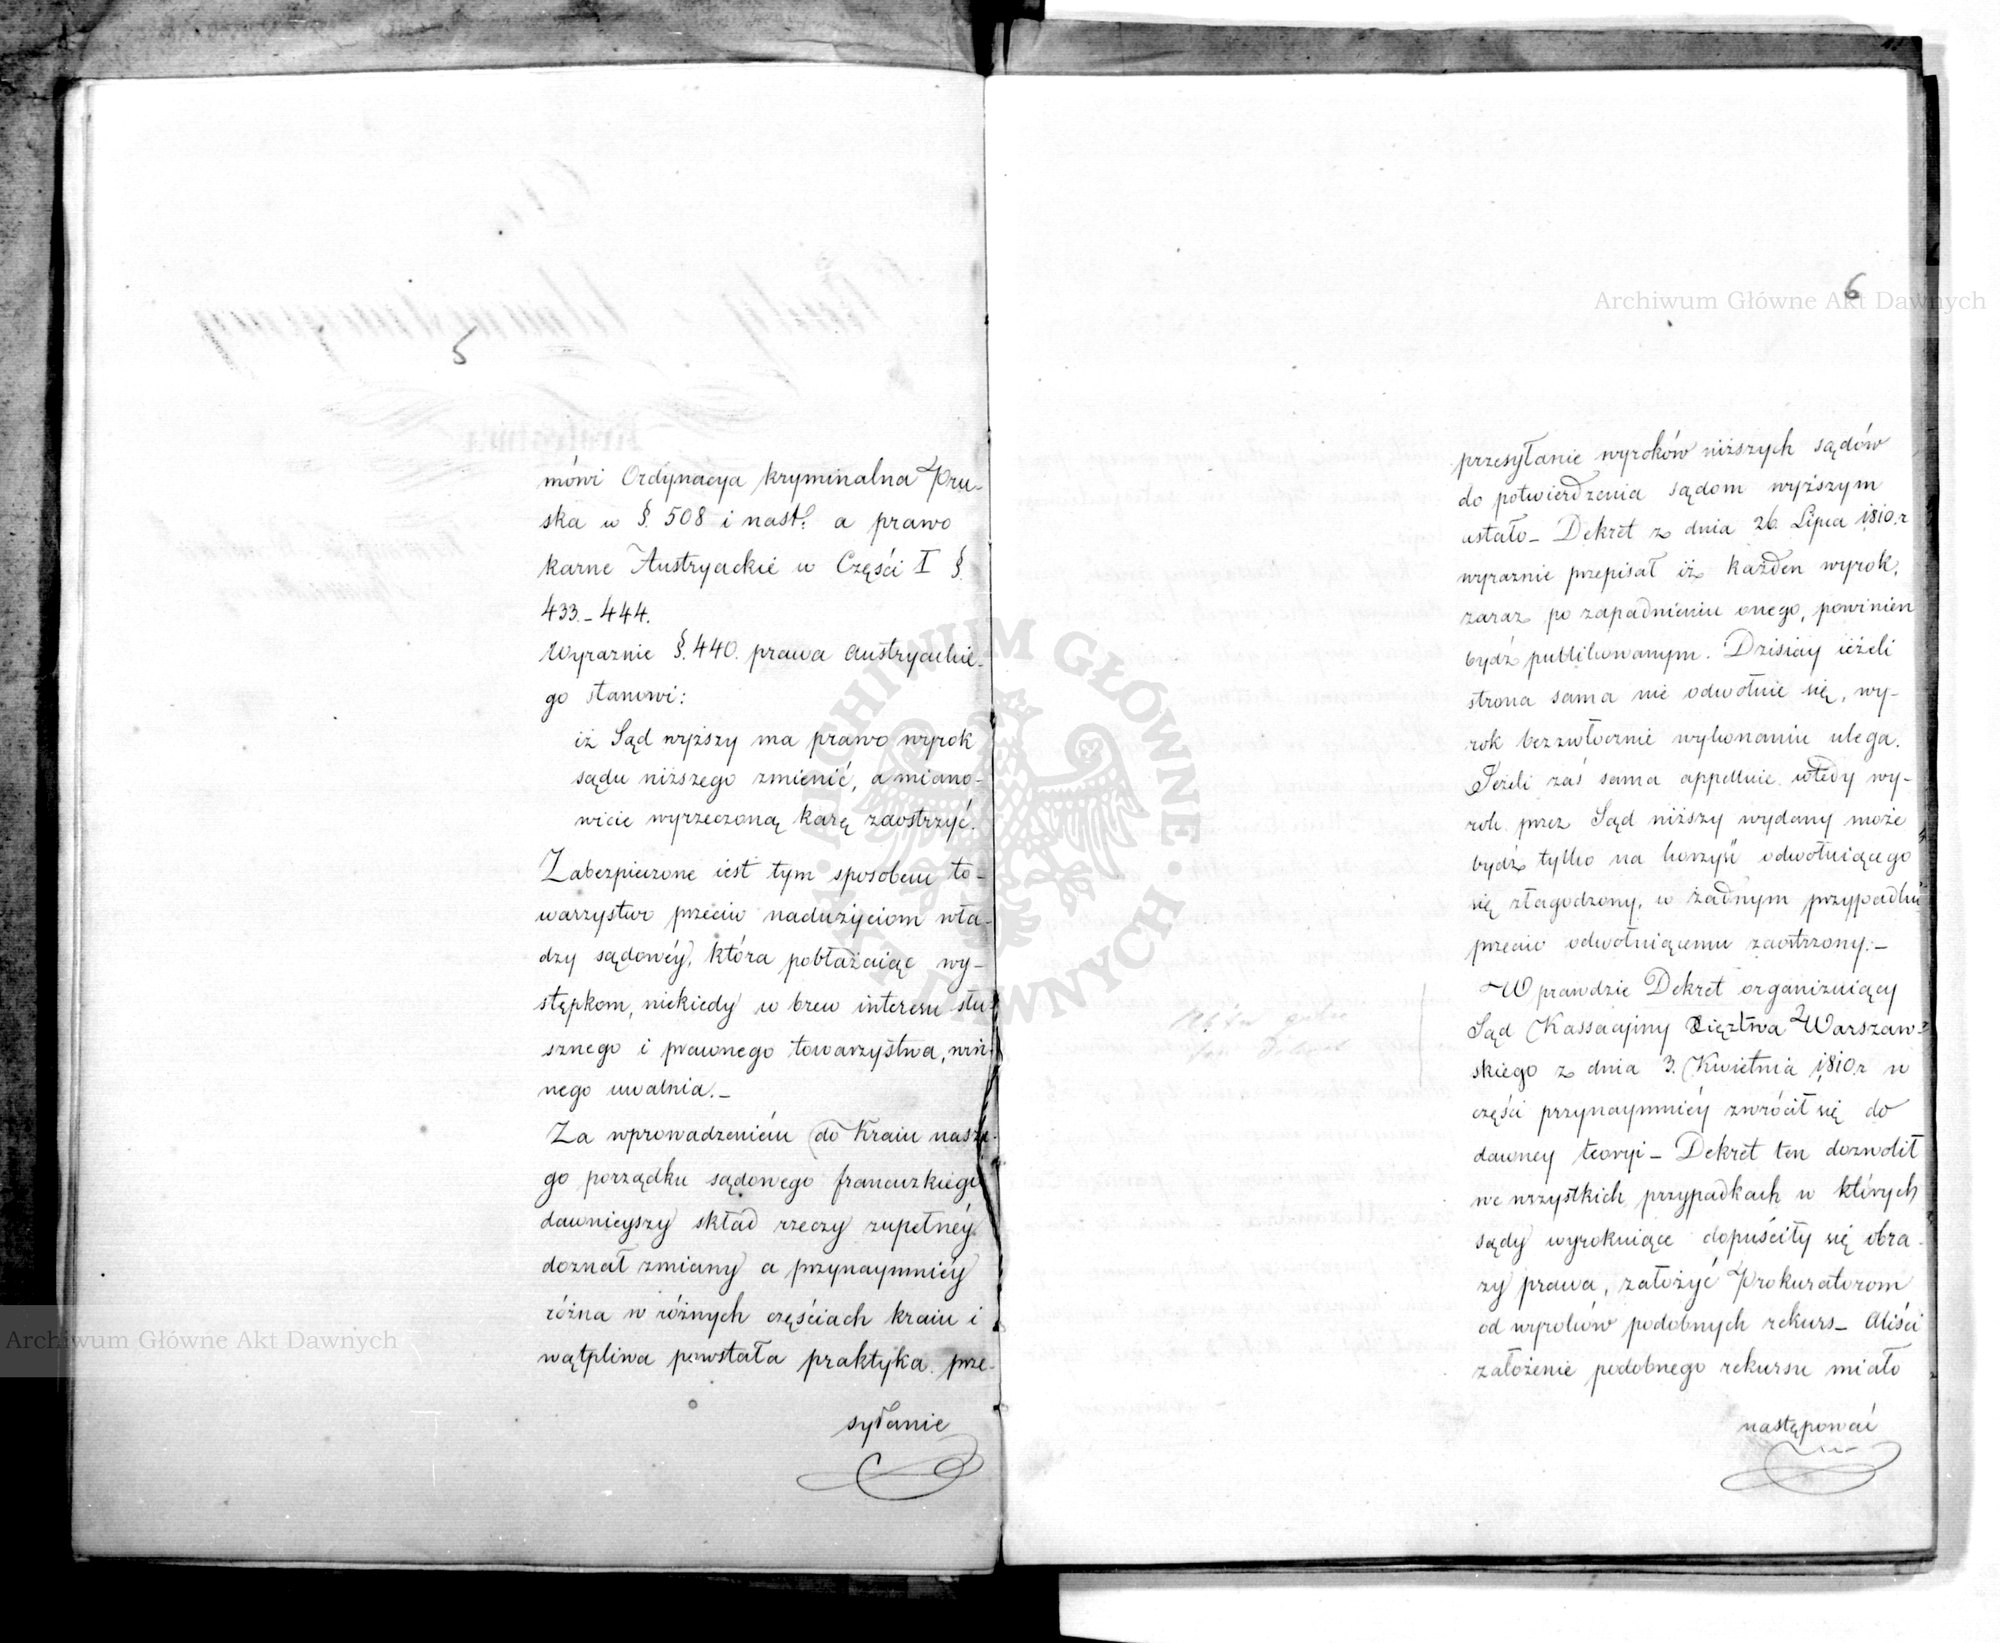 5
mówi Ordynacya kryminalna Pru-
ska w §. 508 i nast. a prawo
karne Austryackie w Części I §.
433.-444.
Wyraznie §. 440. prawa austryackie-
go stanowi:
iż Sąd wyższy ma prawo wyrok
sądu niższego zmienić, a miano-
wicie wyrzeczoną karę zaostrzyć.
Zabezpieczone iest tym sposobem to-
warzystwo przeciw nadużyciom wła-
dzy sądowéy, która pobłażaiąc wy-
stępkom, niekiedy w brew interesu słu-
sznego i prawnego towarzystwa, win-
nego uwalnia.-
Za wprowadzeniem do Kraiu nasze-
go porządku sądowego francuzkiego
dawnieyszy skład rzeczy zupełnéy
doznał zmiany a przynaymniéy
różna w różnych częściach kraiu i
wątpliwa powstała praktyka. prze-
syłanie
6
przesyłanie wyroków niższych sądów
do potwierdzenia sądom wyższym
ustało- Dekret z dnia 26. Lipca 1810.r
wyraznie przepisał iż każden wyrok,
zaraz po zapadnieniu onego, powinien
bydź publikowanym. Dzisiay ieżeli
strona sama nie odwołuie się, wy-
rok bezzwłocznie wykonaniu ulega.
Jeżeli zaś sama appelluie wtedy wy-
rok przez Sąd niższy wydany może
bydź tylko na korzyść odwołuiącego
się złagodzony, w żadnym przypadku
przeciw odwołuiącemu zaostrzony.-
W prawdzie Dekret organizuiący
Sąd Kassacyiny Xięztwa Warszaw-
skiego z dnia 3. Kwietnia 1810.r w
części przynaymniéy zwrócił się do
dawney teoryi- Dekret ten dozwolił
we wszystkich przypadkach w których
sądy wyrokuiące dopuściły się obra-
zy prawa, założyć Prokuratorom
od wyroków podobnych rekurs- Aliści
założenie podobnego rekursu miało
następować
Archiwum Główne Akt Dawnych
Archiwum Główne Akt Dawnych
ARCHIWUM GŁÓWNE AKT DAWNYCH